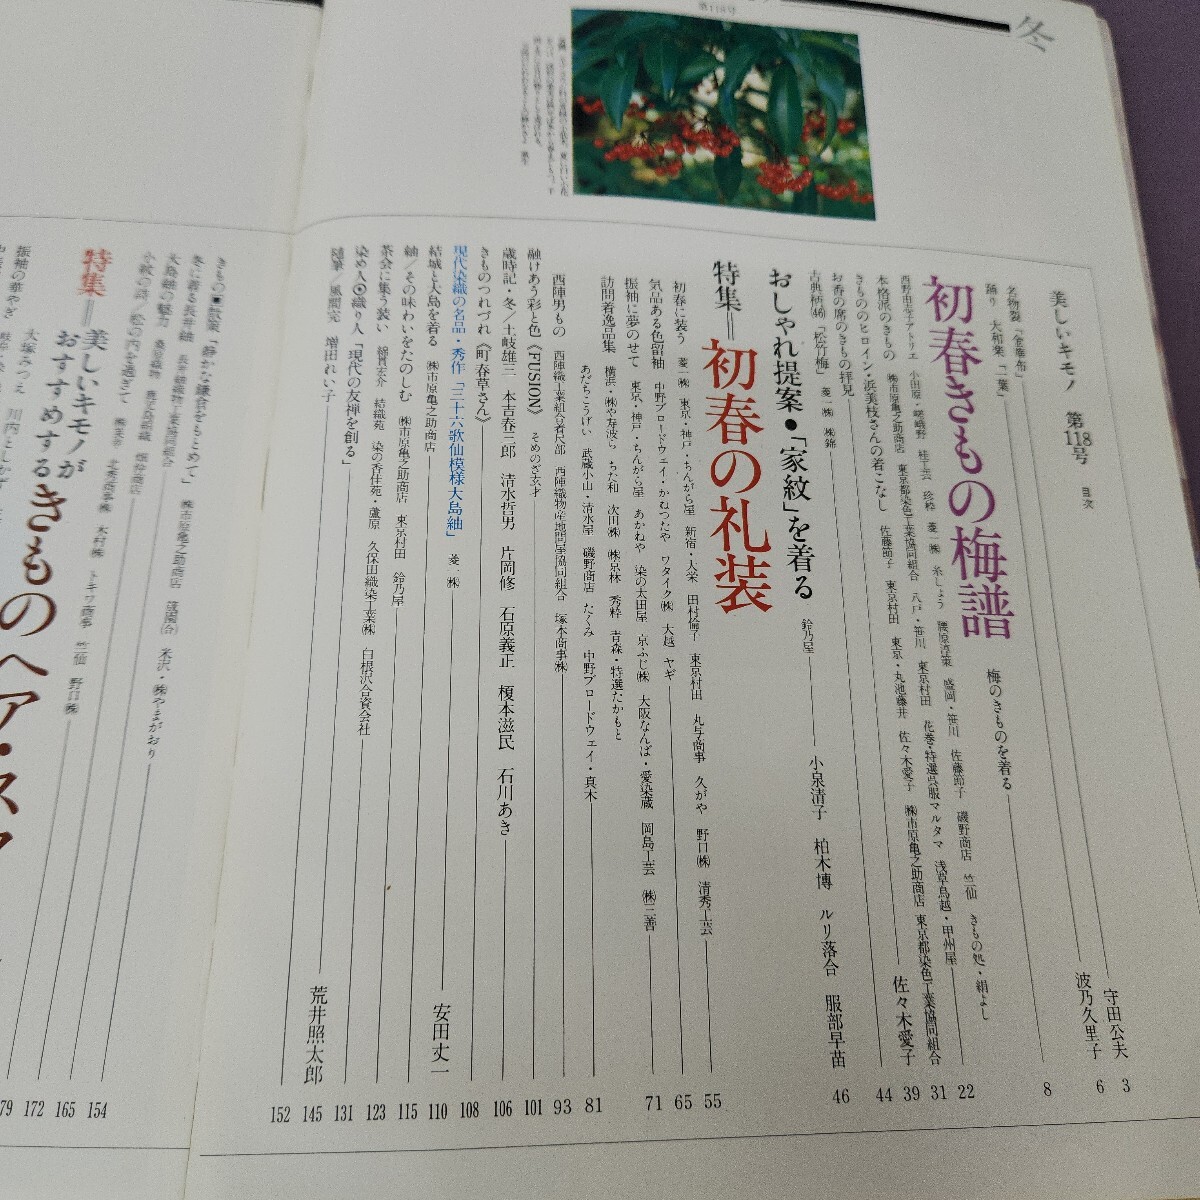 冬
第118号
美しいキモノ 第118号 目次
守田公夫 3
踊り 大和楽「一葉」 波乃久里子 6
初春きもの梅譜 梅のきものを着る 8
本格派のきもの ㈱市原亀之助商店 東京都染色工業協同組合 八戸・笹川 東京村田 花巻・特選呉服マルタマ 浅草鳥越・甲州屋
きもののヒロイン・浜美枝さんの着こなし 佐藤節子 東京村田 東京・丸池藤井 佐々木愛子 ㈱市原亀之助商店 東京都染色工業協同組合
お香の席のきもの拝見 佐々木愛子
古典柄㊻「松竹梅」 菱一㈱ ㈱錦
22
31
39
44
おしゃれ提案●「家紋」を着る 鈴乃屋 小泉清子 柏木博 ルリ落合 服部早苗 46
特集=初春の礼装
初春に装う 菱一㈱ 東京・神戸・ちんがら屋 新宿・大栄 田村倫子 東京村田 丸与商事 久がや 野口㈱ 清秀工芸 55
気品ある色留袖 中野ブロードウェイ・かねつたや ワタイク㈱ 大越 ヤギ 65
振袖に夢のせて 東京・神戸・ちんがら屋 あかねや 染の太田屋 京ふじ㈱ 大阪なんば・愛染蔵 岡島工芸 ㈱三善 71
訪問着逸品集 横浜・㈱や寿波ら ちた和 次田㈱ ㈱京林 秀粋 青森・特選たかもと
あだちこうげい 武蔵小山・清水屋 磯野商店 たくみ 中野ブロードウェイ・真木 81
西陣男もの 西陣織工業組合着尺部 西陣織物産地問屋協同組合 塚本商事㈱ 93
融けあう彩と色《FUSION》 そめのざ玄才 101
歳時記・冬/土岐雄三 本吉春三郎 清水哲男 片岡修 石原義正 榎本滋民 石川あき 106
きものつれづれ《町春草さん》 108
現代染織の名品・秀作「三十六歌仙模様大島紬」 菱一㈱
結城と大島を着る ㈱市原亀之助商店 安田丈一 110
紬/その味わいをたのしむ ㈱市原亀之助商店 東京村田 鈴乃屋 115
茶会に集う装い 綿貫宏介 結織苑 染の香佳苑・蘆原 久保田織染工業㈱ 白根沢合資会社 123
染め人◉織り人「現代の友禅を創る」 131
随筆/風間完 増田れい子 荒井照太郎 145
152
きもの■散策「静かな鎌倉をもとめて」 ㈱市原亀之助商店
冬に着る長井紬 長井紬織物工業協同組合
大島紬の魅力
小紋の詩/松の内を過ぎて
特集=美しいキモノがおすすめするきもののヘア・スタ
振袖の華やぎ 大塚みつえ
154
165
172
79